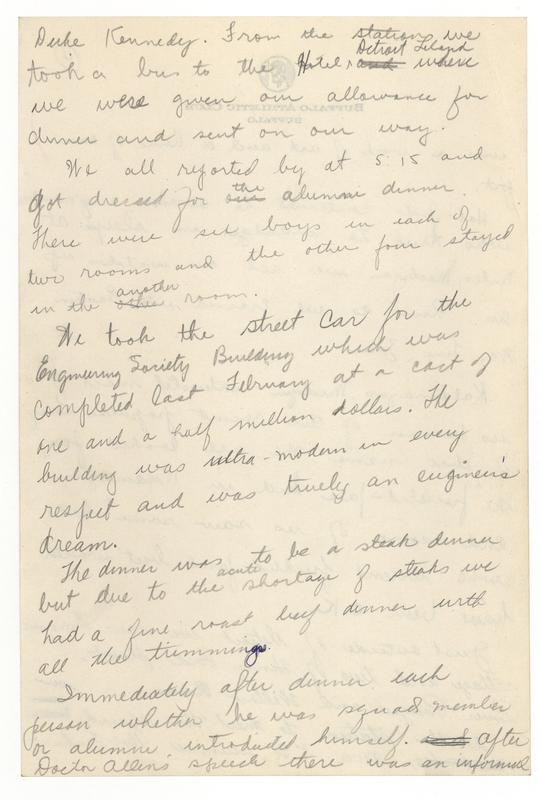 Duke Kennedy. From the station we
took a bus to the Hotel Detroit Leland where
we were given our allowance for
dinner and sent on our way.
We all reported by at 5:15 and
got dressed for the alumni dinner.
There were six boys in each of
two rooms and the other four stayed
in the another room.
We took the street car for the
Engineering Society Building which was
completed last February at a cost of
one and a half million dollars. The
building was ultra-modern in every
respect and was truely an engineer's
dream.
The dinner was to be a steak dinner
but due to the acute shortage of steaks we
had a fine roast beef dinner with
all the trimmings.
Immediately after dinner each
person whether he was squad member
or alumni introduced himself. after
Doctor Allen's speech there was an informal
BUFFALO ATHLETIC CLUB
BUFFALO